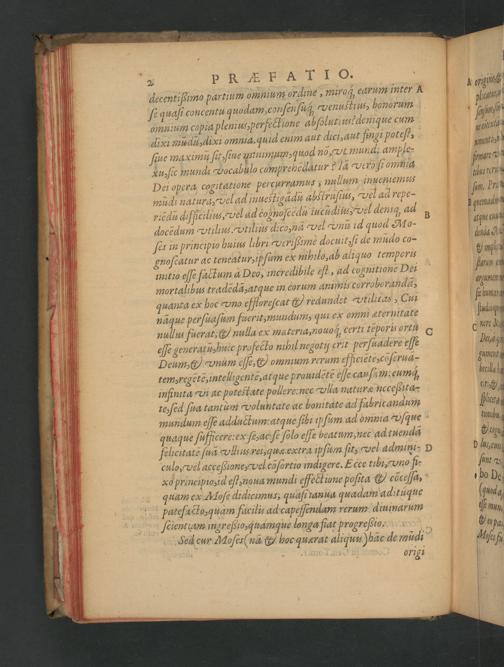 2 PRÆFATIO.
decentißimo partium omnium ordine, miroq́; earum inter A
se quasi concentu quodam, consensuq́; venustius, bonorum
omnium copia plenius, perfectione absolutius? denique cum
dixi mũdũ, dixi omnia. quid enim aut dici, aut fingi potest,
siue maximũ sit, siue minimum, quod nõ, vt mundi ample-
xu, sic mundi vocabulo comprehẽdatur? Iã verò si omnia
Dei opera cogitatione percurramus, nullum inueniemus
mũdi natura, vel ad inuestigãdũ abstrusius, vel ad repe-
riẽdũ difficilius, vel ad cognoscẽdũ iucũdius, vel deniq; ad B
docẽdum vtilius. vtilius dico, nã vel vnũ id quod Mo-
ses in principio huius libri verißimè docuit, si de mũdo co-
gnoscatur ac teneatur, ipsum ex nihilo, ab aliquo temporis
initio esse factum à Deo, incredibile est, ad cognitione Dei
mortalibus tradẽdã, atque in eorum animis corroborandã,
quanta ex hoc vno efflorescat & redundet vtilitas, Cui
nãque persuasum fuerit, mundum, qui ex omni æternitate
nullus fuerat, & nulla ex materia, nouoq́; certi tẽporis ortu C
esse generatũ, huic profecto nihil negoty erit persuadere esse
Deum, & vnum esse, & omnium rerum efficiẽte, cõserua-
tem, regẽtẽ, intelligentẽ, atque prouidẽtẽ esse causam: eumq́;
infinita vi ac potestate pollere: nec vlla naturæ necessita-
te, sed sua tantum voluntate ac bonitate ad fabricandum
mundum esse adductum: atque sibi ipsum ad omnia vsque
quaque sufficere: ex se, ac se solo esse beatum, nec ad tuendã
felicitatẽ suã vllius rei, quæ extra ipsum sit, vel admini- D
culo, vel accessione, vel cõsortio indigere. Ecce tibi, vno fi-
xo principio, id est, noua mundi effectione posita & cõcessa,
quam ex Mose didicimus, quasi ianua quadam adituque
patefacto, quam facilis ad capessendam rerum diuinarum
scientiam ingreßio, quamque longa fiat progreßio.
Sed cur Moses (nã & hoc quærat aliquis) hãc de mũdi
origi